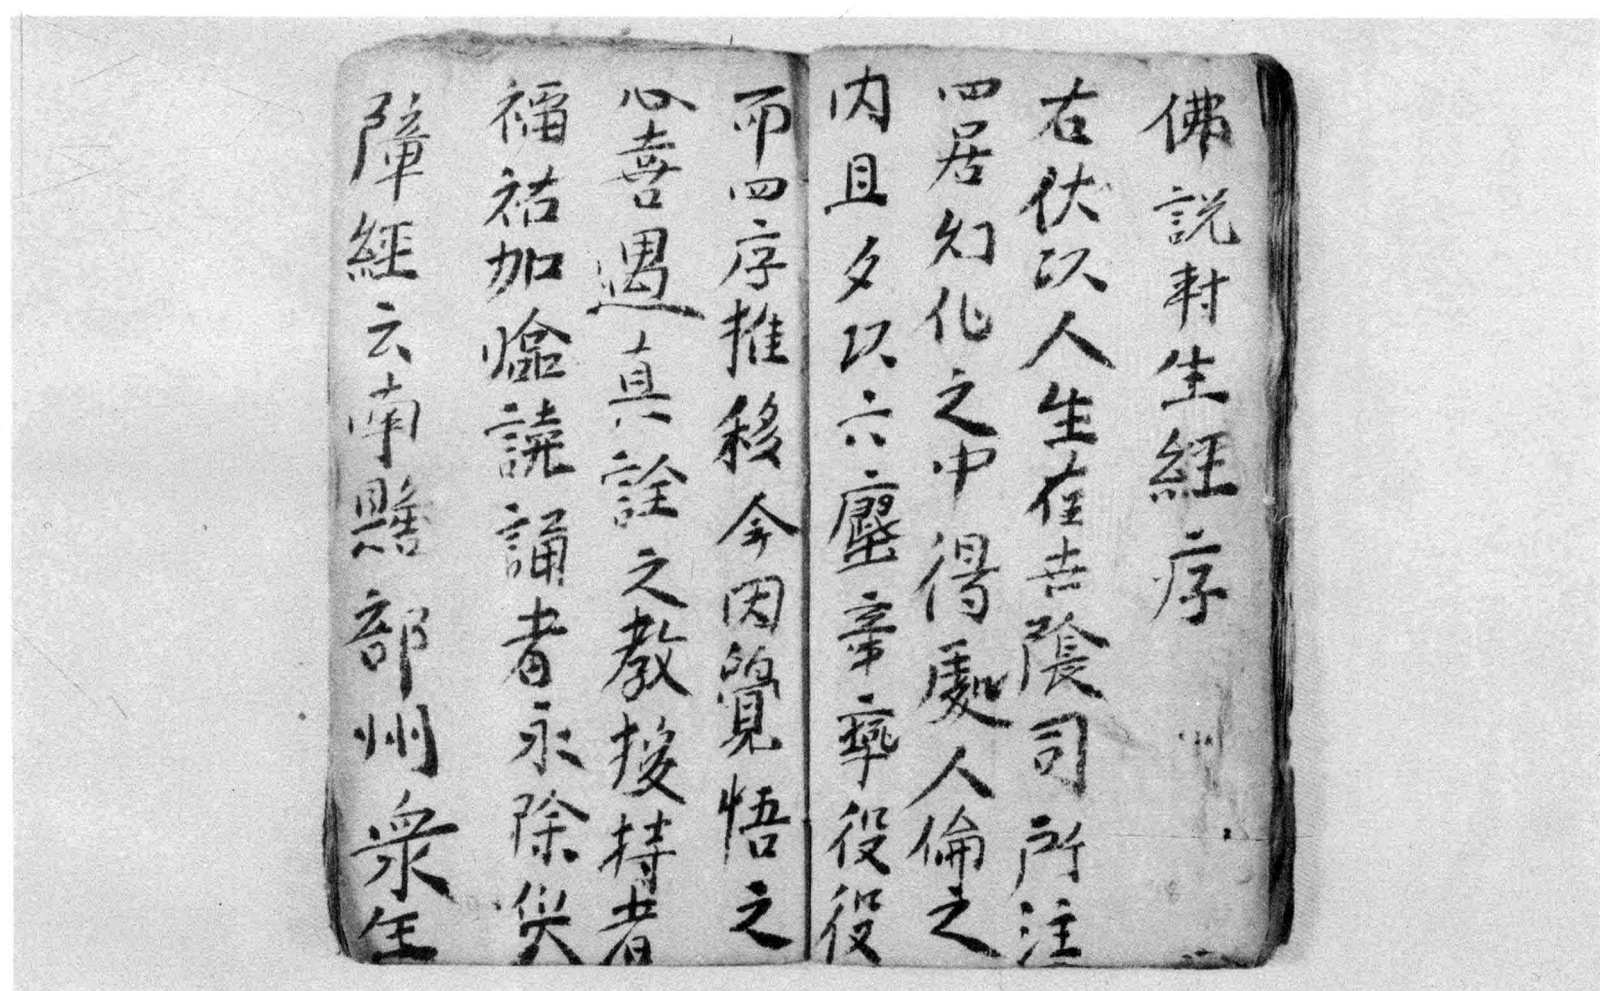 佛説封生經序
右伏以人生在吉陰司所注
四居幻化之中得處人倫之
内且夕以六塵牽役役
而四序推移今因覺悟之
心喜遇真詮之教授持者
福祐加臨讀誦者永除災
障經云南瞻部州衆生